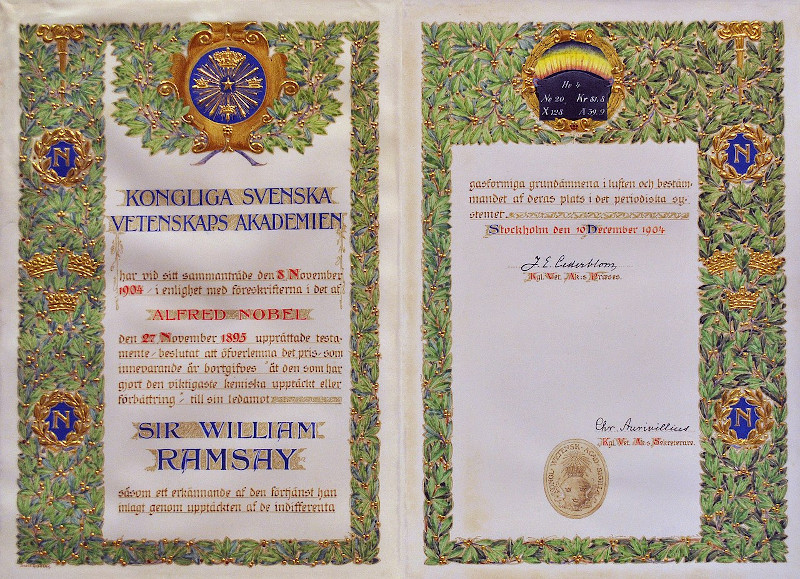 KONGLIGA SVENSKA
VETENSKAPS AKADEMIEN
har vid sitt sammanträde den 8 November
1904 i enlighet med föreskrifterna i det af
ALFRED NOBEL
den 27 November 1895 upprättade testa-
mente beslutat att öfverlemna det pris som
innevarande år bortgifves "åt den som har
gjort den viktigaste kemiska upptäckt eller
förbättring" till sin ledamot
SIR WILLIAM
RAMSAY
såsom ett erkännande af den förtjänst han
inlagt genom upptäckten af de indifferenta
N
N
He 4
Ne 20 Kr 81.8
X 128 A 39.9
gasformiga grundämnena i luften och bestäm-
mandet af deras plats i det periodiska sy-
stemet.
Stockholm den 10 December 1904
J. E. Cederblom
Kgl. Vet. Ak:s Præses.
Chr. Aurivillius
Kgl. Vet. Ak:s Sekreterare.
N
N